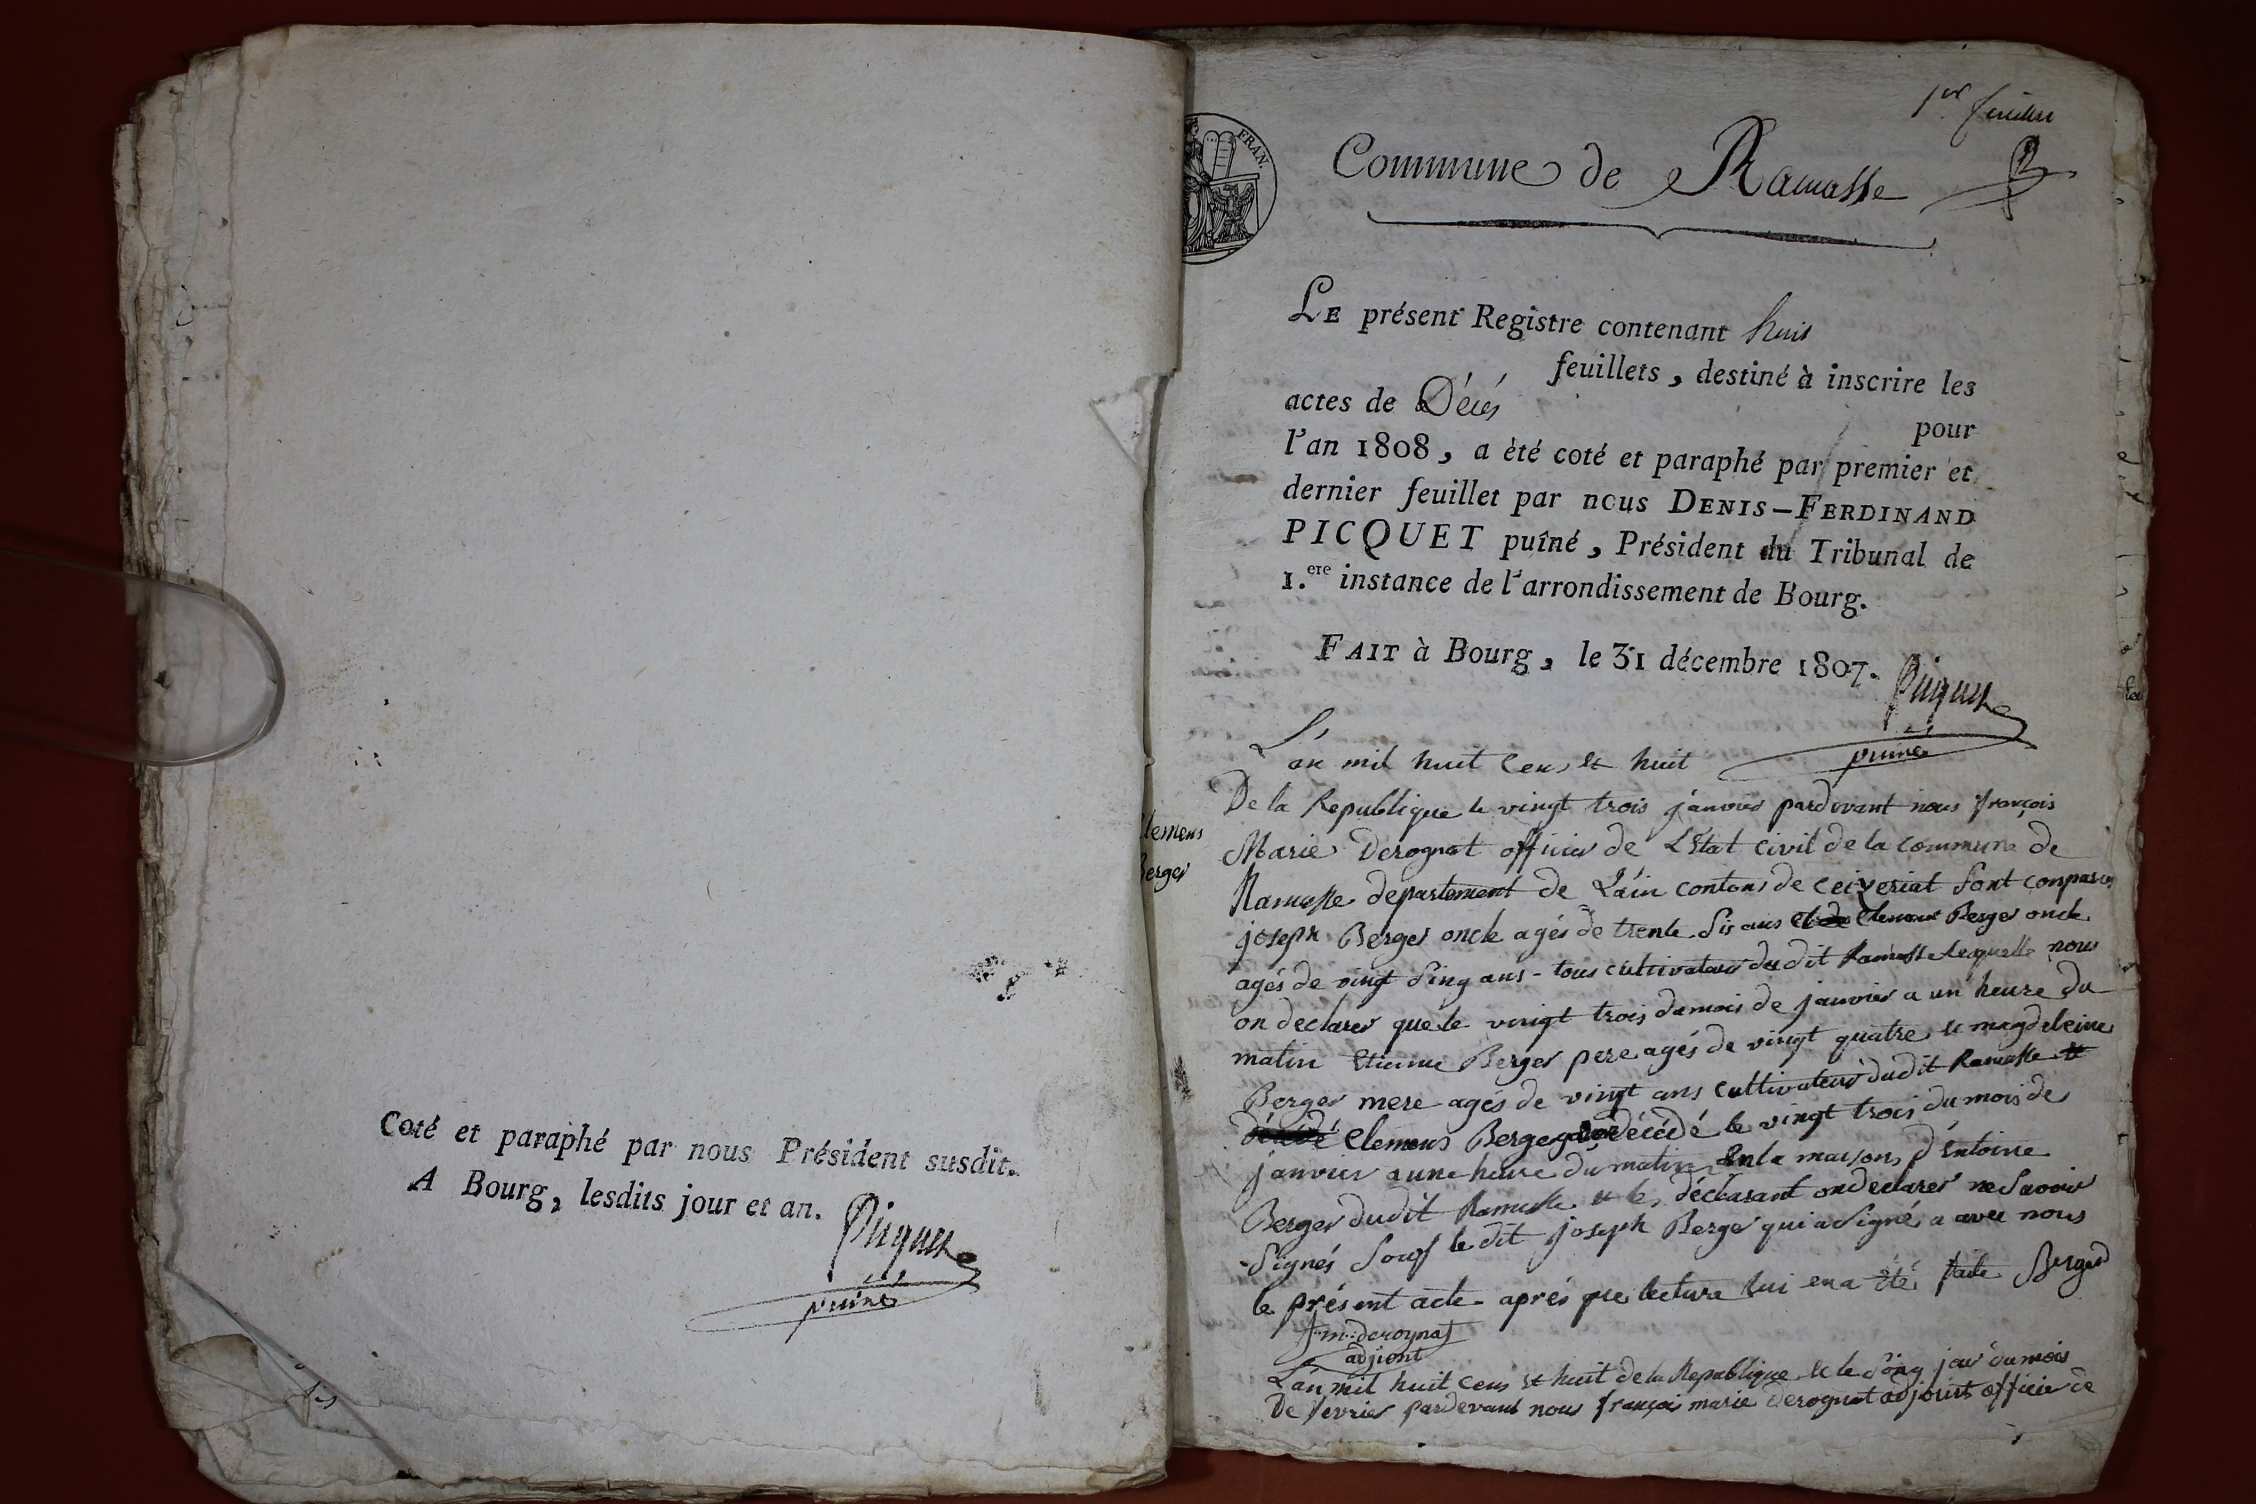 Coté et paraphé par nous Président susdit.
A Bourg, lesdits jour et an.
Picquet
puiné
1er feuillet
FRAN.
Commune de Ramasse
LE présent Registre contenant huit
feuillets, destiné à inscrire les
actes de Décés
pour
l'an 1808, a été coté et paraphé par premier et
dernier feuillet par nous DENIS-FERDINAND
PICQUET puîné, Président du Tribunal de
1.ere instance de l'arrondissement de Bourg.
FAIT à Bourg, le 31 décembre 1807.
Picquet
puiné
L'an mil huit cens et huit
De la Republique le vingt trois janvier pardevant nous françois
lemens
Berger
Marie Derognat officier de L'Etat civil de la commune de
Ramasse departement de L'ain contons de ceiyeriat sont conparus
joseph Berger oncle agés de trente sis ans Clemens Berger oncle
agés de vingt sinq ans - tous cultivateurs du dit Ramasse lequelle nous
on declarer que le vingt trois du mois de janvier a un heure du
matin Etienne Berger pere agés de vingt quatre et magdeleine
Berger mere agés de vingt ans cultivateurs dudit Ramasse et
décédé Clemens Berger décédé le vingt trois du mois de
janvier a une heure du matin en la maisons d'Entoine
Berger dudit Ramasse et les déclarant on declarer ne savoir
Signés souf le dit joseph Berger qui a signé a avec nous
le présent acte aprés que lecture lui en a été faite Berger
f.m. derognat
adjient
L'an mil huit cens et huit de la Republique et le sinq jour du mois
De fevrier pardevant nous françois marie derognat adjoint officier de